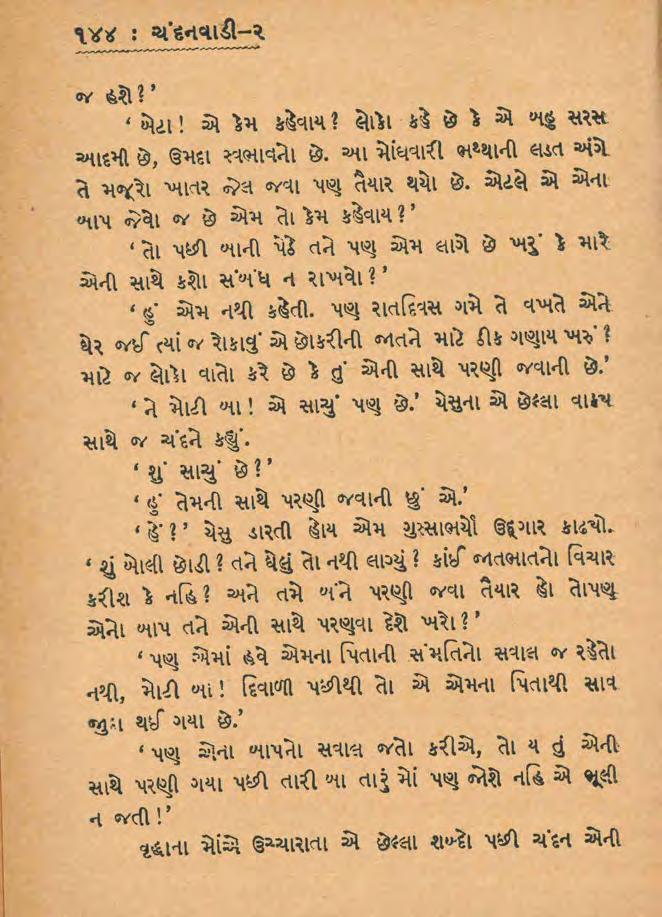 ૧૪૪ : ચંદનવાડી–૨
જ હશે?’
‘બેટા! એ કેમ કહેવાય? લોકો કહે છે કે એ બહુ સરસ
આદમી છે, ઉમદા સ્વભાવનો છે. આ મોંઘવારી ભથ્થાની લડત અંગે
તે મજૂરો ખાતર જેલ જવા પણ તૈયાર થયો છે. એટલે એ એના
બાપ જેવો જ છે એમ તો કેમ કહેવાય?’
‘તો પછી બાની પેઠે તને પણ એમ લાગે છે ખરું કે મારે
એની સાથે કશો સંબંધ ન રાખવો?’
‘હું એમ નથી કહેતી. પણ રાતદિવસ ગમે તે વખતે એને
ઘેર જઈ ત્યાં જ રોકાવું એ છોકરીની જાતને માટે ઠીક ગણાય ખરું?
માટે જ લોકો વાતો કરે છે કે તું એની સાથે પરણી જવાની છે.’
‘ને મોટી બા! એ સાચું પણ છે.’ ચેસુના એ છેલ્લા વાક્ય
સાથે જ ચંદને કહ્યું.
‘શું સાચું છે?’
‘હું તેમની સાથે પરણી જવાની છું એ.’
‘હેં?’ ચેસુ ડારતી હોય એમ ગુસ્સાભર્યો ઉદ્દગાર કાઢ્યો.
‘શું બોલી છોડી? તને ઘેલું તો નથી લાગ્યું? કાંઈ જાતભાતનો વિચાર
કરીશ કે નહિ? અને તમે બંને પરણી જવા તૈયાર હો તોપણ
એનો બાપ તને એની સાથે પરણવા દેશે ખરો?’
‘પણ એમાં હવે એમના પિતાની સંમતિનો સવાલ જ રહેતો
નથી, મોટી બા! દિવાળી પછીથી તો એ એમના પિતાથી સાવ
જુદા થઈ ગયા છે.’
‘પણ એના બાપનો સવાલ જતો કરીએ, તો ય તું એની
સાથે પરણી ગયા પછી તારી બા તારું મોં પણ જોશે નહિ એ ભૂલી
ન જતી!’
વૃદ્ધાના મોંએ ઉચ્ચારાતા એ છેલ્લા શબ્દો પછી ચંદન એની